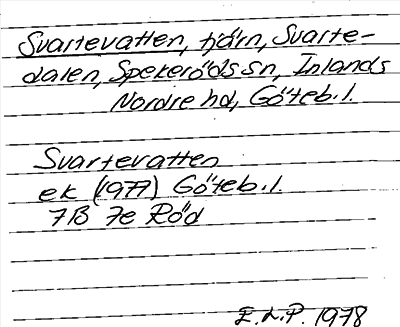 Svartevatten, tjärn, Svarte-
dalen, Spekeröds sn, Inlands
Nordre hd, Göteb. l.
Svartevatten
ek (1977) Göteb. l.
7B 7e Röd
E.L.P. 1978